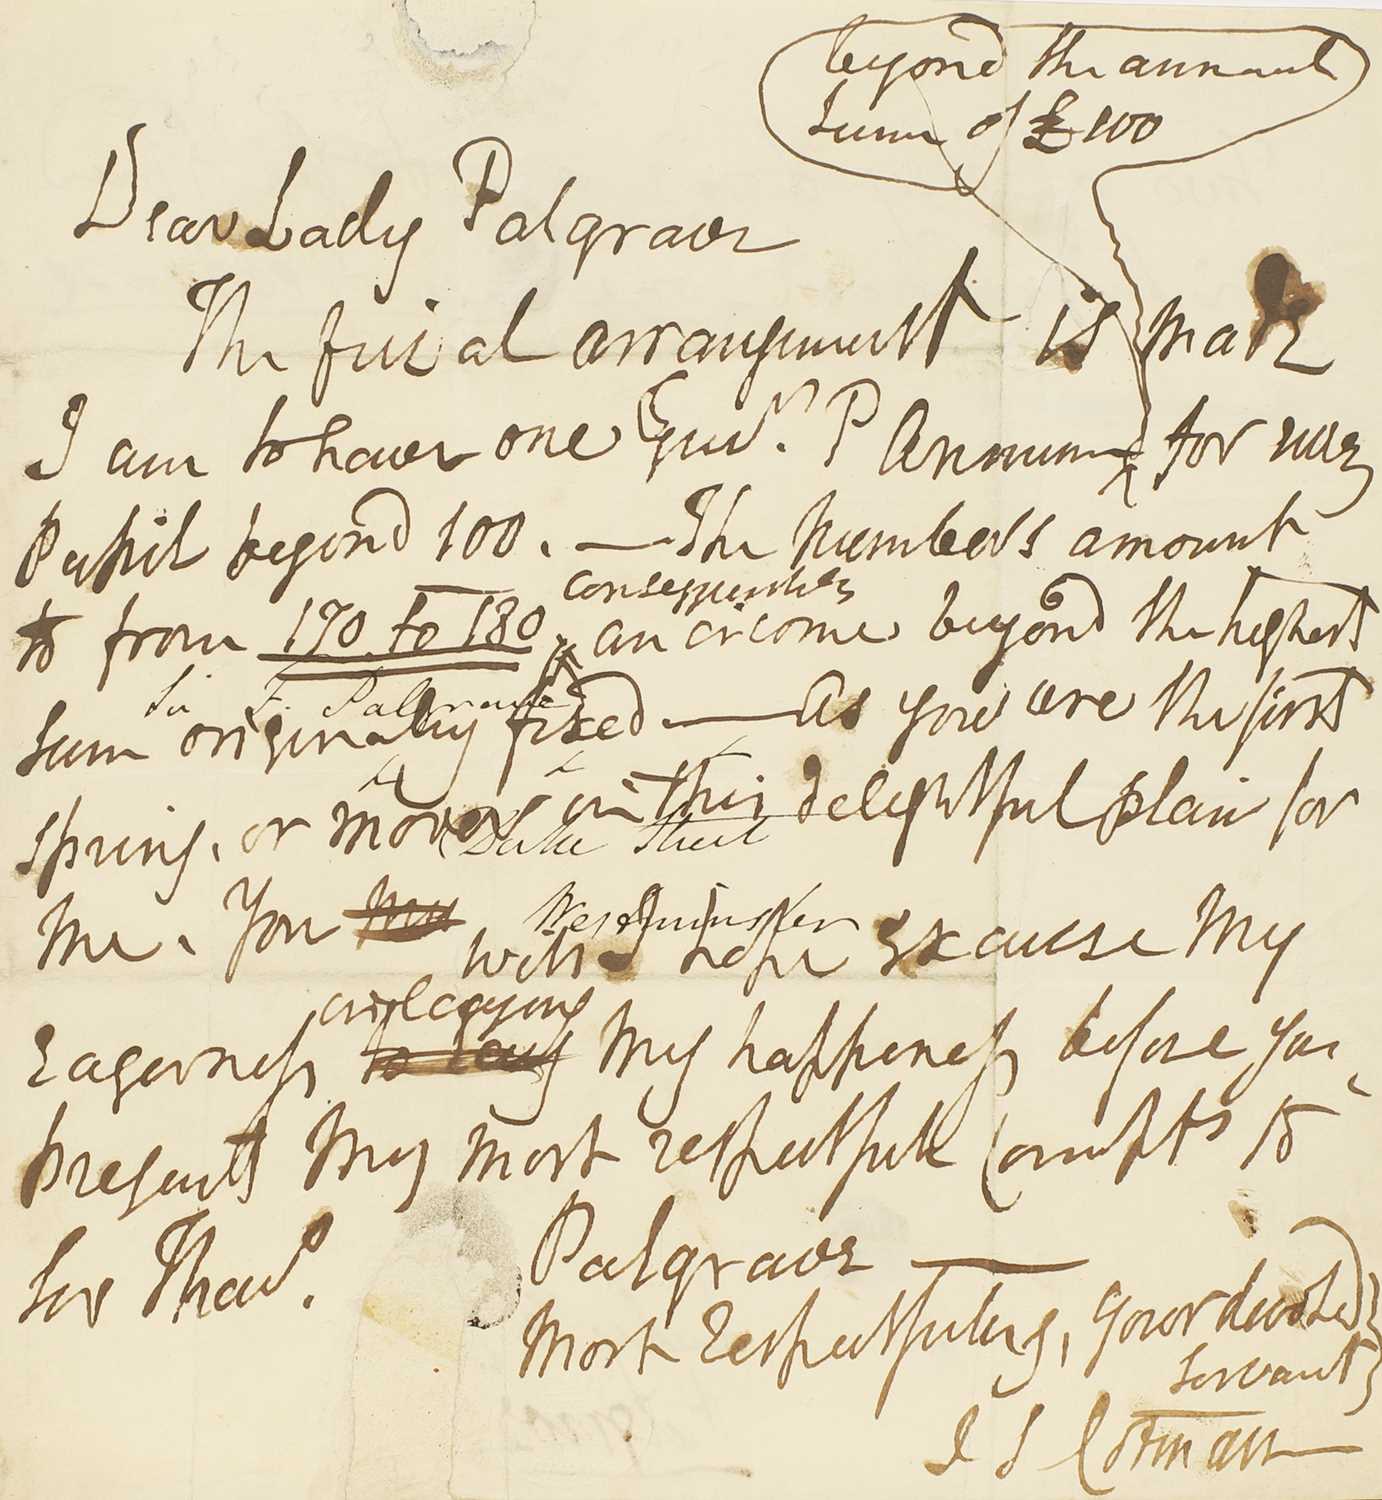 beyond the annual
Sum of £100
Dear Lady Palgrave
The final arrangement is made
I am to have one Guin.ͣ P Annum for every
Pupil beyond 100. — The Numbers amount
to from 170 to 180
consequently
an income beyond the highest
Sir F. Palgrave
Sum originally fixed — As you are the first
spring, or mover in this delightful plan for
Duke Street
me. You
Westminster
will I hope Excuse My
in conveying
Eagerness to lay My happiness before you,
present My most respectful Compts to
Sir Thos.
Palgrave —
Most Respectfully, your devoted
Servant
J S Cotman